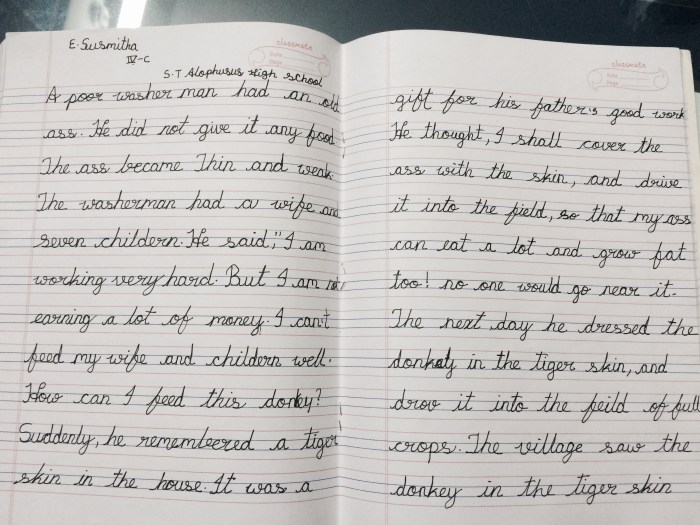 E. Susmitha
IV-C
S.T Alophusus High school
classmate
Date
Page
A poor washer man had an old
ass. He did not give it any food
The ass became Thin and weak
The washerman had a wife and
seven childern. He said," I am
working very hard. But I am not
earning a lot of money. I can't
feed my wife and childern well.
How can I feed this donkey?
Suddenly, he remembered a tiger
skin in the house. It was a
classmate
Date
Page
gift for his father's good work
He thought, I shall cover the
ass with the skin, and drive
it into the field, so that my ass
can eat a lot and grow fat
too! no one would go near it.
The next day he dressed the
donkey in the tiger skin, and
drov it into the feild of full
crops. The village saw the
donkey in the tiger skin